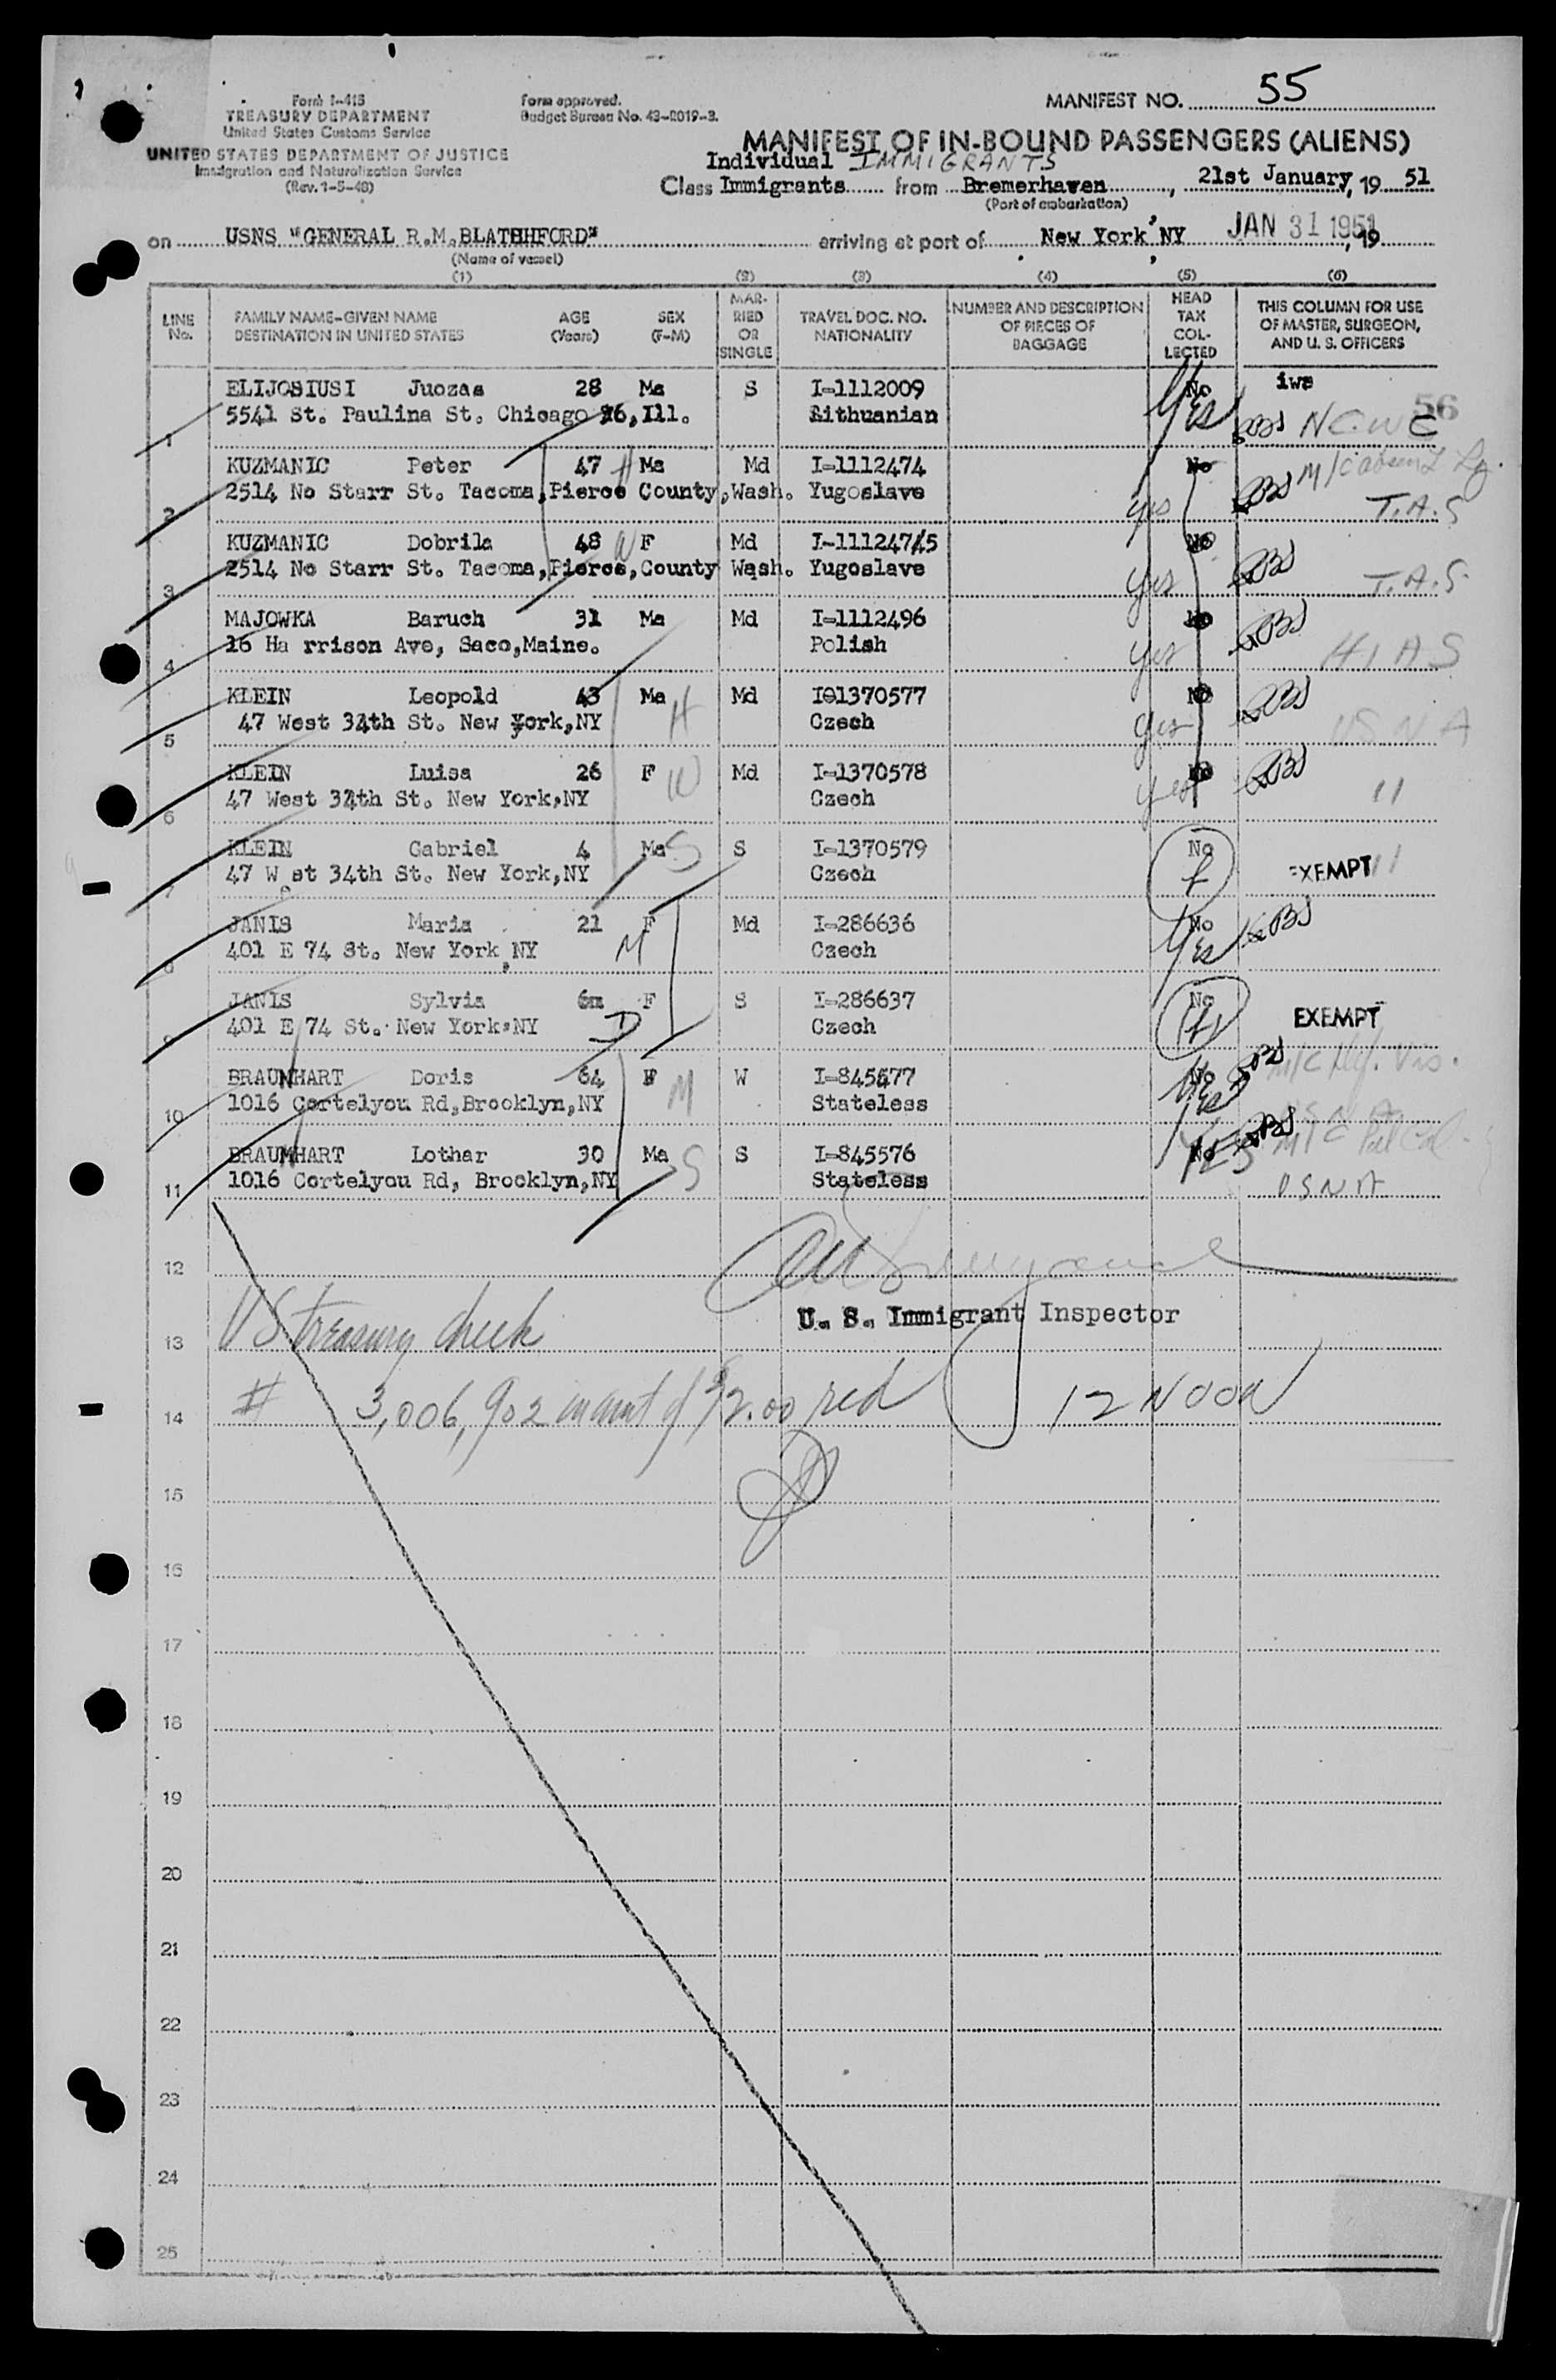 Form I-415
TREASURY DEPARTMENT
United States Customs Service
UNITED STATES DEPARTMENT OF JUSTICE
Immigration and Naturalization Service
(Rev. 1-5-48)
Form approved.
Budget Bureau No. 43-R019-3.
MANIFEST NO. 55
MANIFEST OF IN-BOUND PASSENGERS (ALIENS)
Individual IMMIGRANTS
Class Immigrants from Bremerhaven, 21st January, 19 51
(Port of embarkation)
on USNS "GENERAL R.M.BLATCHFORD" arriving at port of New York NY JAN 31 1951, 19
(Name of vessel)
(1) (2) (3) (4) (5) (6)
LINE No. FAMILY NAME-GIVEN NAME DESTINATION IN UNITED STATES AGE (Years) SEX (F-M) MARRIED OR SINGLE TRAVEL DOC. NO. NATIONALITY NUMBER AND DESCRIPTION OF PIECES OF BAGGAGE HEAD TAX COLLECTED THIS COLUMN FOR USE OF MASTER, SURGEON, AND U. S. OFFICERS
ELIJOSIUSI Juozas 28 Ma S I-1112009 No Yes iwe 56
1 5541 St. Paulina St. Chicago 36, Ill. Lithuanian NCWC
KUZMANIC Peter 47 H Ma Md I-1112474 No M/C
2 2514 No Starr St. Tacoma,Pierce County,Wash. Yugoslave yes T.A.S
KUZMANIC Dobrila 48 W F Md I-1112475 No
3 2514 No Starr St. Tacoma,Pierce,County Wash. Yugoslave yes T.A.S.
MAJOWKA Baruch 31 Ma Md I-1112496 No
4 16 Ha rrison Ave, Saco,Maine. Polish yes HIAS
KLEIN Leopold 43 Ma H Md I01370577 No
5 47 West 34th St. New York,NY Czech yes USNA
KLEIN Luisa 26 F W Md I-1370578 No
6 47 West 34th St. New York,NY Czech yes "
KLEIN Gabriel 4 Ma S S I-1370579 No
7 47 W e st 34th St. New York,NY Czech EXEMPT "
JANIS Maria 21 F M Md I-286636 No
8 401 E 74 St. New York,NY Czech Yes
JANIS Sylvia 6m F D S I-286637 No
9 401 E 74 St. New York,NY Czech EXEMPT
BRAUNHART Doris 64 F M W I-845577 No M/C
10 1016 Cortelyou Rd,Brooklyn,NY Stateless Yes USNA
BRAUNHART Lothar 30 Ma S S I-845576 No YES M/C
11 1016 Cortelyou Rd, Brooklyn,NY Stateless USNA
12
U. S. Immigrant Inspector
13 US Treasury Check
14 # 3,006,902 in amt of $2.00 red 12 NOON
15
16
17
18
19
20
21
22
23
24
25